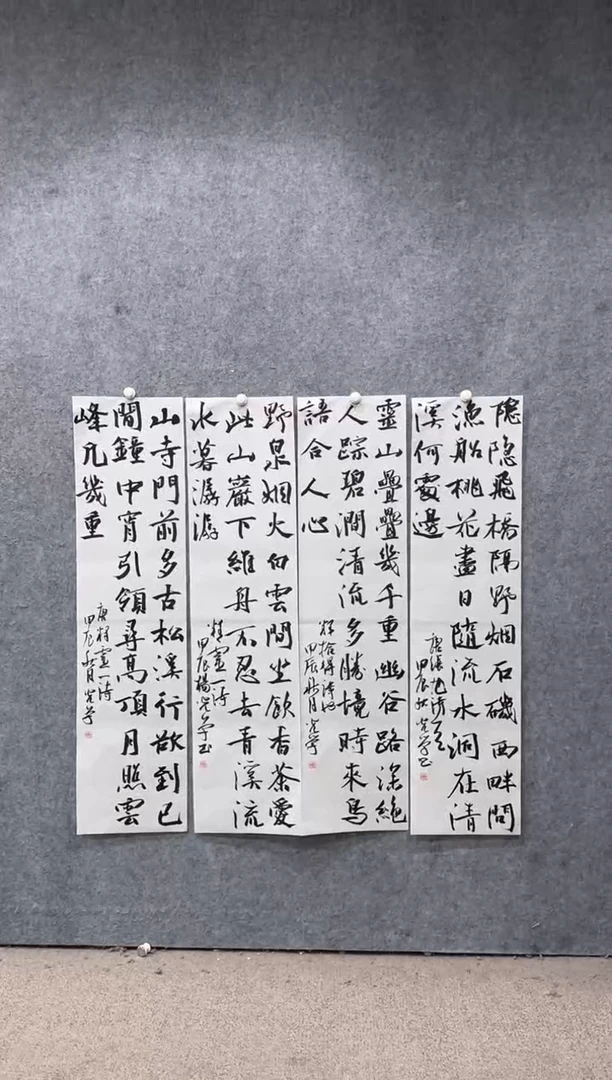 隱隱飛橋隔野烟石磯西畔問
漁船桃花盡日隨流水洞在清
溪何處邊
唐張旭詩
甲辰秋 光学书
靈山疊疊幾千重幽谷路深絶
人踪碧澗清流多勝境時來鳥
語合人心
釋拾得詩
甲辰秋月 光学
野泉烟火白雲間坐飲香茶愛
此山巖下維舟不忍去青溪流
水暮潺潺
釋靈一詩
甲辰楊光学书
山寺門前多古松溪行欲到已
聞鐘中宵引領尋高頂月照雲
峰凡幾重
唐釋靈一詩
甲辰秋月光学